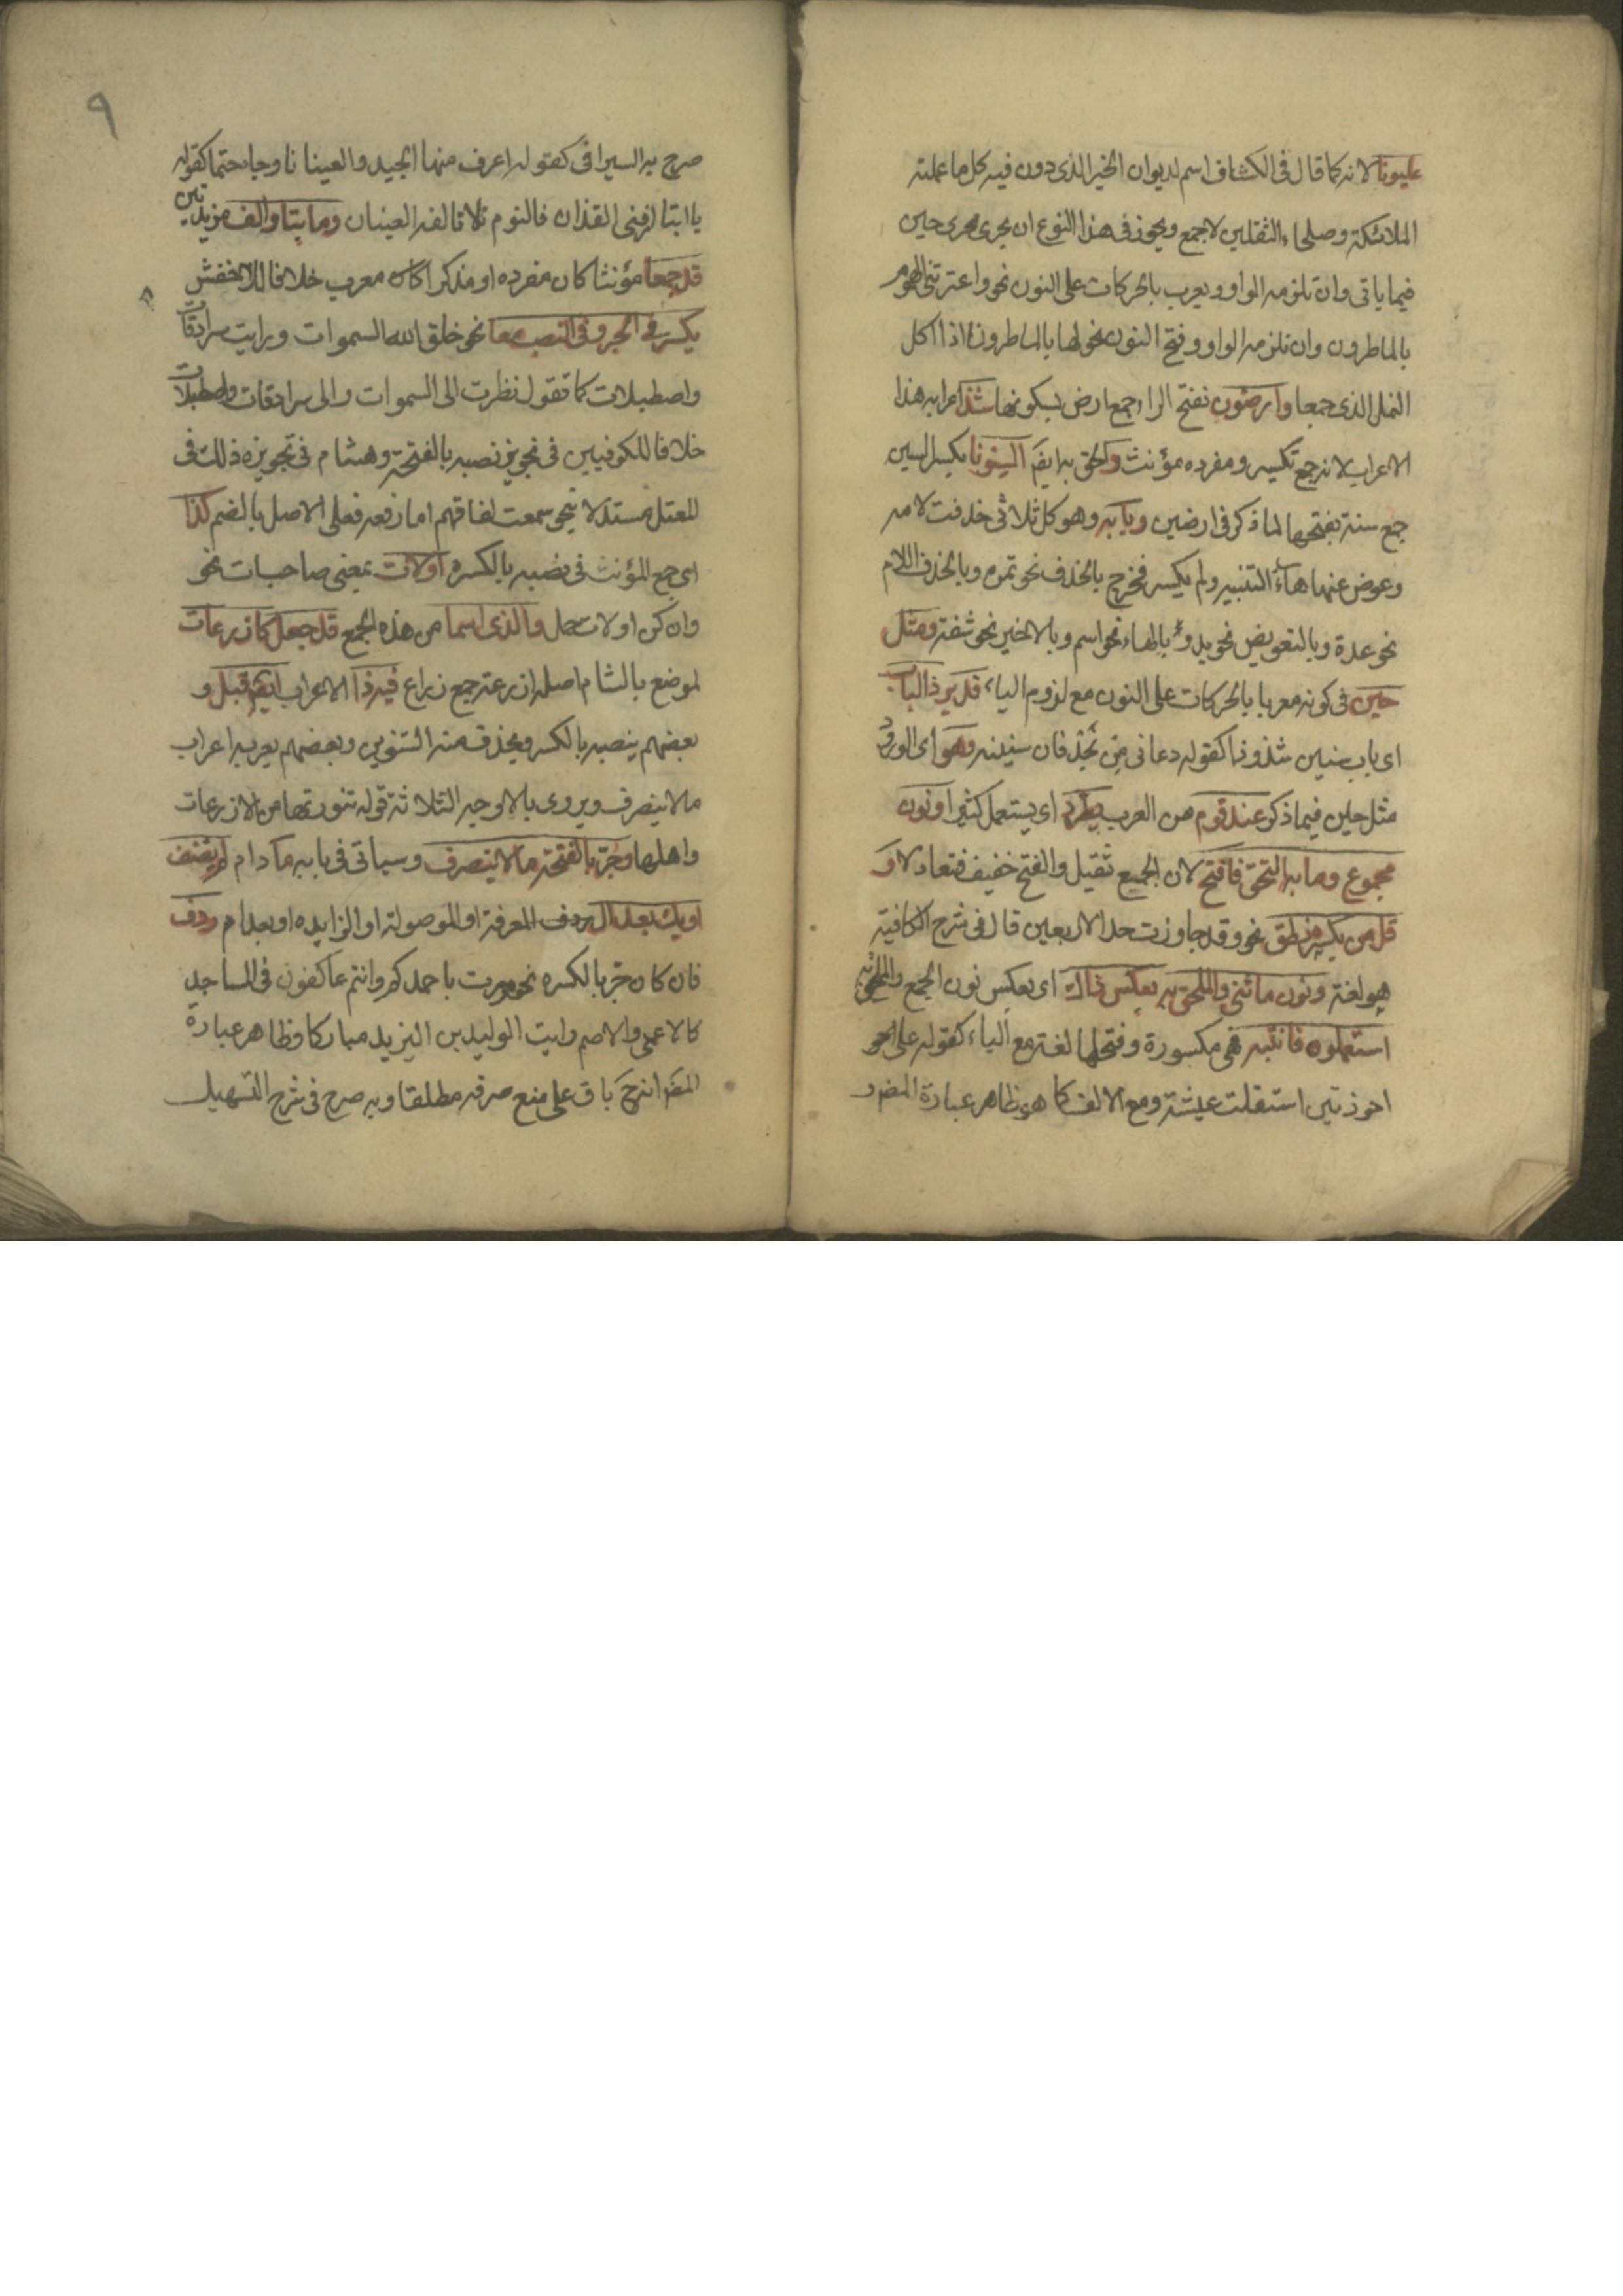 عليونا لانه كما قال فى الكشاف اسم لديوان الخير الذى دون فيه كل ما عملته
الملائكة وصلحاء الثقلين لا جمع ويجوز فى هذا النوع ان يجرى مجرى حين
فيما ياتى وان تلزمه الواو ويعرب بالحركات على النون نحو واعترتنى الهموم
بالماطرون وان تلزمه الواو وفتح النون نحو لها بالماطرون اذا اكل
النمل الذى جمعا وارضون بفتح الراء جمع ارض بسكونها شذ اعرابه هذا
الاعراب لانه جمع تكسير ومفرده مؤنث والحق به ايضا السنونا بكسر السين
جمع سنة بفتحها لما ذكر فى ارضين وبابه وهو كل ثلاثى حذفت لامه
وعوض عنها هاء التنبيه ولم يكسر فخرج بالحذف نحو تمرة وبالحذف اللام
نحو عدة وبالتعويض نحو يد وبالهاء نحو اسم وبالاخير نحو شفة ومثل
حين فى كونه معربا بالحركات على النون مع لزوم الياء قد يرد ذا الباب
اى باب سنين شذوذا كقوله دعانى من نجد فان سنينه وهو اى الورود
مثل حين فيما ذكر عند قوم من العرب يطرد اى يستعمل كثيرا ونون
مجموع وما به التحق فافتح لان الجمع ثقيل والفتح خفيف فتعادلا و
قل من بكسره نطق نحو وقد جاوزت حد الاربعين قال فى شرح الكافية
هو لغة ونون ما ثنى والملحق به بعكس ذاك اى بعكس نون الجمع والملحق به
استعملوه فانتبه فهى مكسورة وفتحها لغة مع الياء كقوله على احو
احوذتين استقلت عيشة ومع الالف كما هو ظاهر عبارة المص و
٩
صرح به السيرافى كقوله اعرف منها الجيد والعينانا وجاء حتما كقوله
يا ابتا ارقنى القذان فالنوم لا تالفه العينان وما بتا والف مزيدتين
قد جمعا مؤنثا كان مفرده او مذكرا كان معرب خلافا للاخفش
يكسر فى الجر وفى النصب معا نحو خلق الله السموات ورايت سرادقات
واصطبلات كما تقول نظرت الى السموات والى سرادقات واصطبلات
خلافا للكوفيين فى تجويز نصبه بالفتحة وهشام فى تجويزه ذلك فى
المعتل مستدلا بنحو سمعت لغاتهم اما رفعه فعلى الاصل بالضم كذا
اى جمع المؤنث فى نصبه بالكسرة اولات بمعنى صاحبات نحو
وان كن اولات حمل والذى اسما من هذه الجمع قد جعل كاذرعات
لموضع بالشام اصله اذرعة جمع ذراع فيه ذا الاعراب ايضا قبل و
بعضهم ينصبه بالكسر ويحذف منه التنوين وبعضهم يعربه اعراب
مالا ينصرف ويروى بالاوجه الثلاثة قوله تنورتها من اذرعات
واهلها وجر بالفتحة مالا ينصرف وسياتى فى بابه ما دام لم يضف
اويك بعد ال ردف المعرفة او الموصولة او الزايده او بعد ام ردف
فان كان جر بالكسره نحو مررت باحمدكم وانتم عاكفون فى المساجد
كالاعمى والاصم رايت الوليد بن اليزيد مباركا وظاهر عبارة
المص انه ح باق على منع صرفه مطلقا وبه صرح فى شرح التسهيل